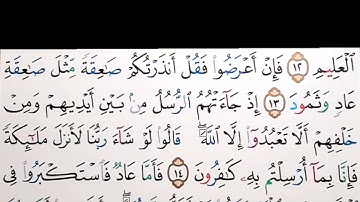 ٱلْعَلِيمِ ١٢ فَإِنْ أَعْرَضُوا۟ فَقُلْ أَنذَرْتُكُمْ صَٰعِقَةً مِّثْلَ صَٰعِقَةِ
عَادٍ وَثَمُودَ ١٣ إِذْ جَآءَتْهُمُ ٱلرُّسُلُ مِنۢ بَيْنِ أَيْدِيهِمْ وَمِنْ
خَلْفِهِمْ أَلَّا تَعْبُدُوٓا۟ إِلَّا ٱللَّهَ ۖ قَالُوا۟ لَوْ شَآءَ رَبُّنَا لَأَنزَلَ مَلَٰٓئِكَةً
فَإِنَّا بِمَآ أُرْسِلْتُم بِهِۦ كَٰفِرُونَ ١٤ فَأَمَّا عَادٌ فَٱسْتَكْبَرُوا۟ فِى